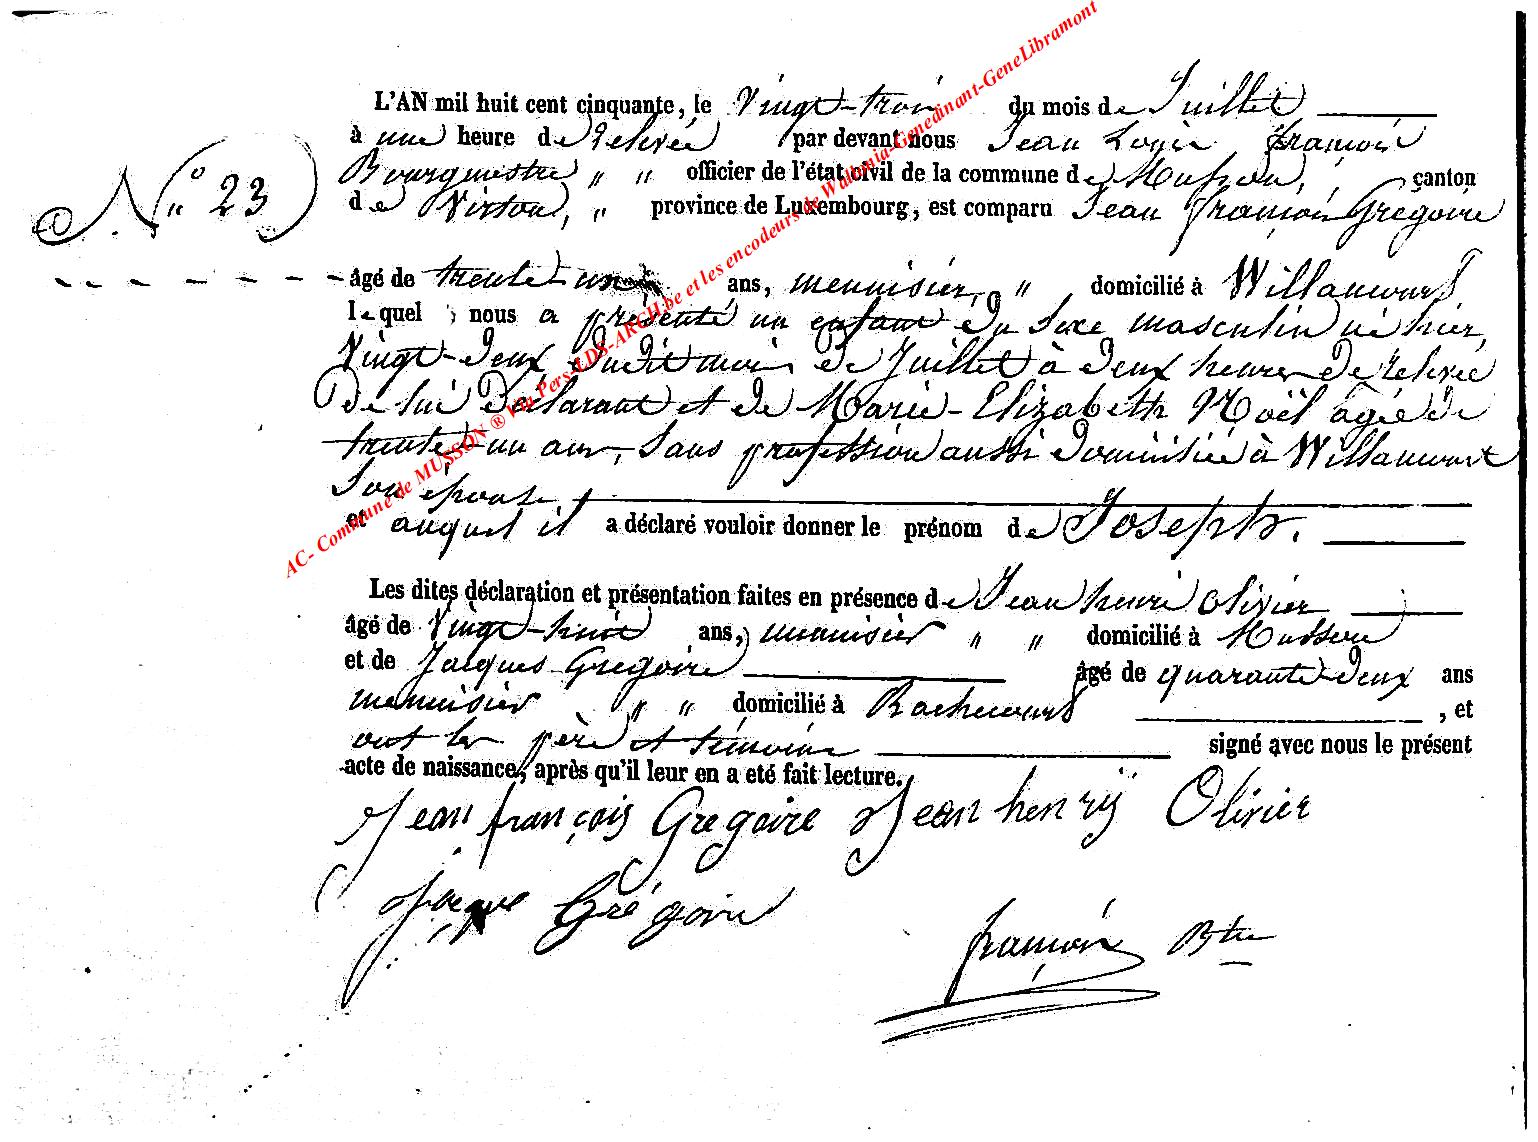 L'AN mil huit cent cinquante, le Vingt-trois du mois de Juillet
à une heure de Relevée par devant nous Jean Louis françois
N° 23
Bourgmestre " " officier de l'état civil de la commune de Musson, , canton
de Virton, " province de Luxembourg, est comparu Jean françois Grégoire
âgé de trente-un ans, menuisier, " domicilié à Willancourt,
lequel nous a présenté un enfant du sexe masculin né hier,
Vingt-deux dudit mois de Juillet à deux heures de relevée
de lui déclarant et de Marie-Elizabeth Noël agée de
trente-un ans, sans profession aussi domiciliée à Willancourt
son épouse
et auquel il a déclaré vouloir donner le prénom de Joseph.
Les dites déclaration et présentation faites en présence de Jean henri Olivier
âgé de Vingt-huit ans, menuisier " " domicilié à Musson
et de Jacques Grégoire âgé de quarante-deux ans
menuisier " " domicilié à Rachecourt , et
ont les père et témoins signé avec nous le présent
acte de naissance, après qu'il leur en a eté fait lecture.
Jean françois Gregoire Jean henrÿ Olivier
Jacque Grégoire
françois Btre
AC- Commune de MUSSON ® Via Pers-LDS-ARCH.be et les encodeurs de Wallonia-Genedinant-GeneLibramont